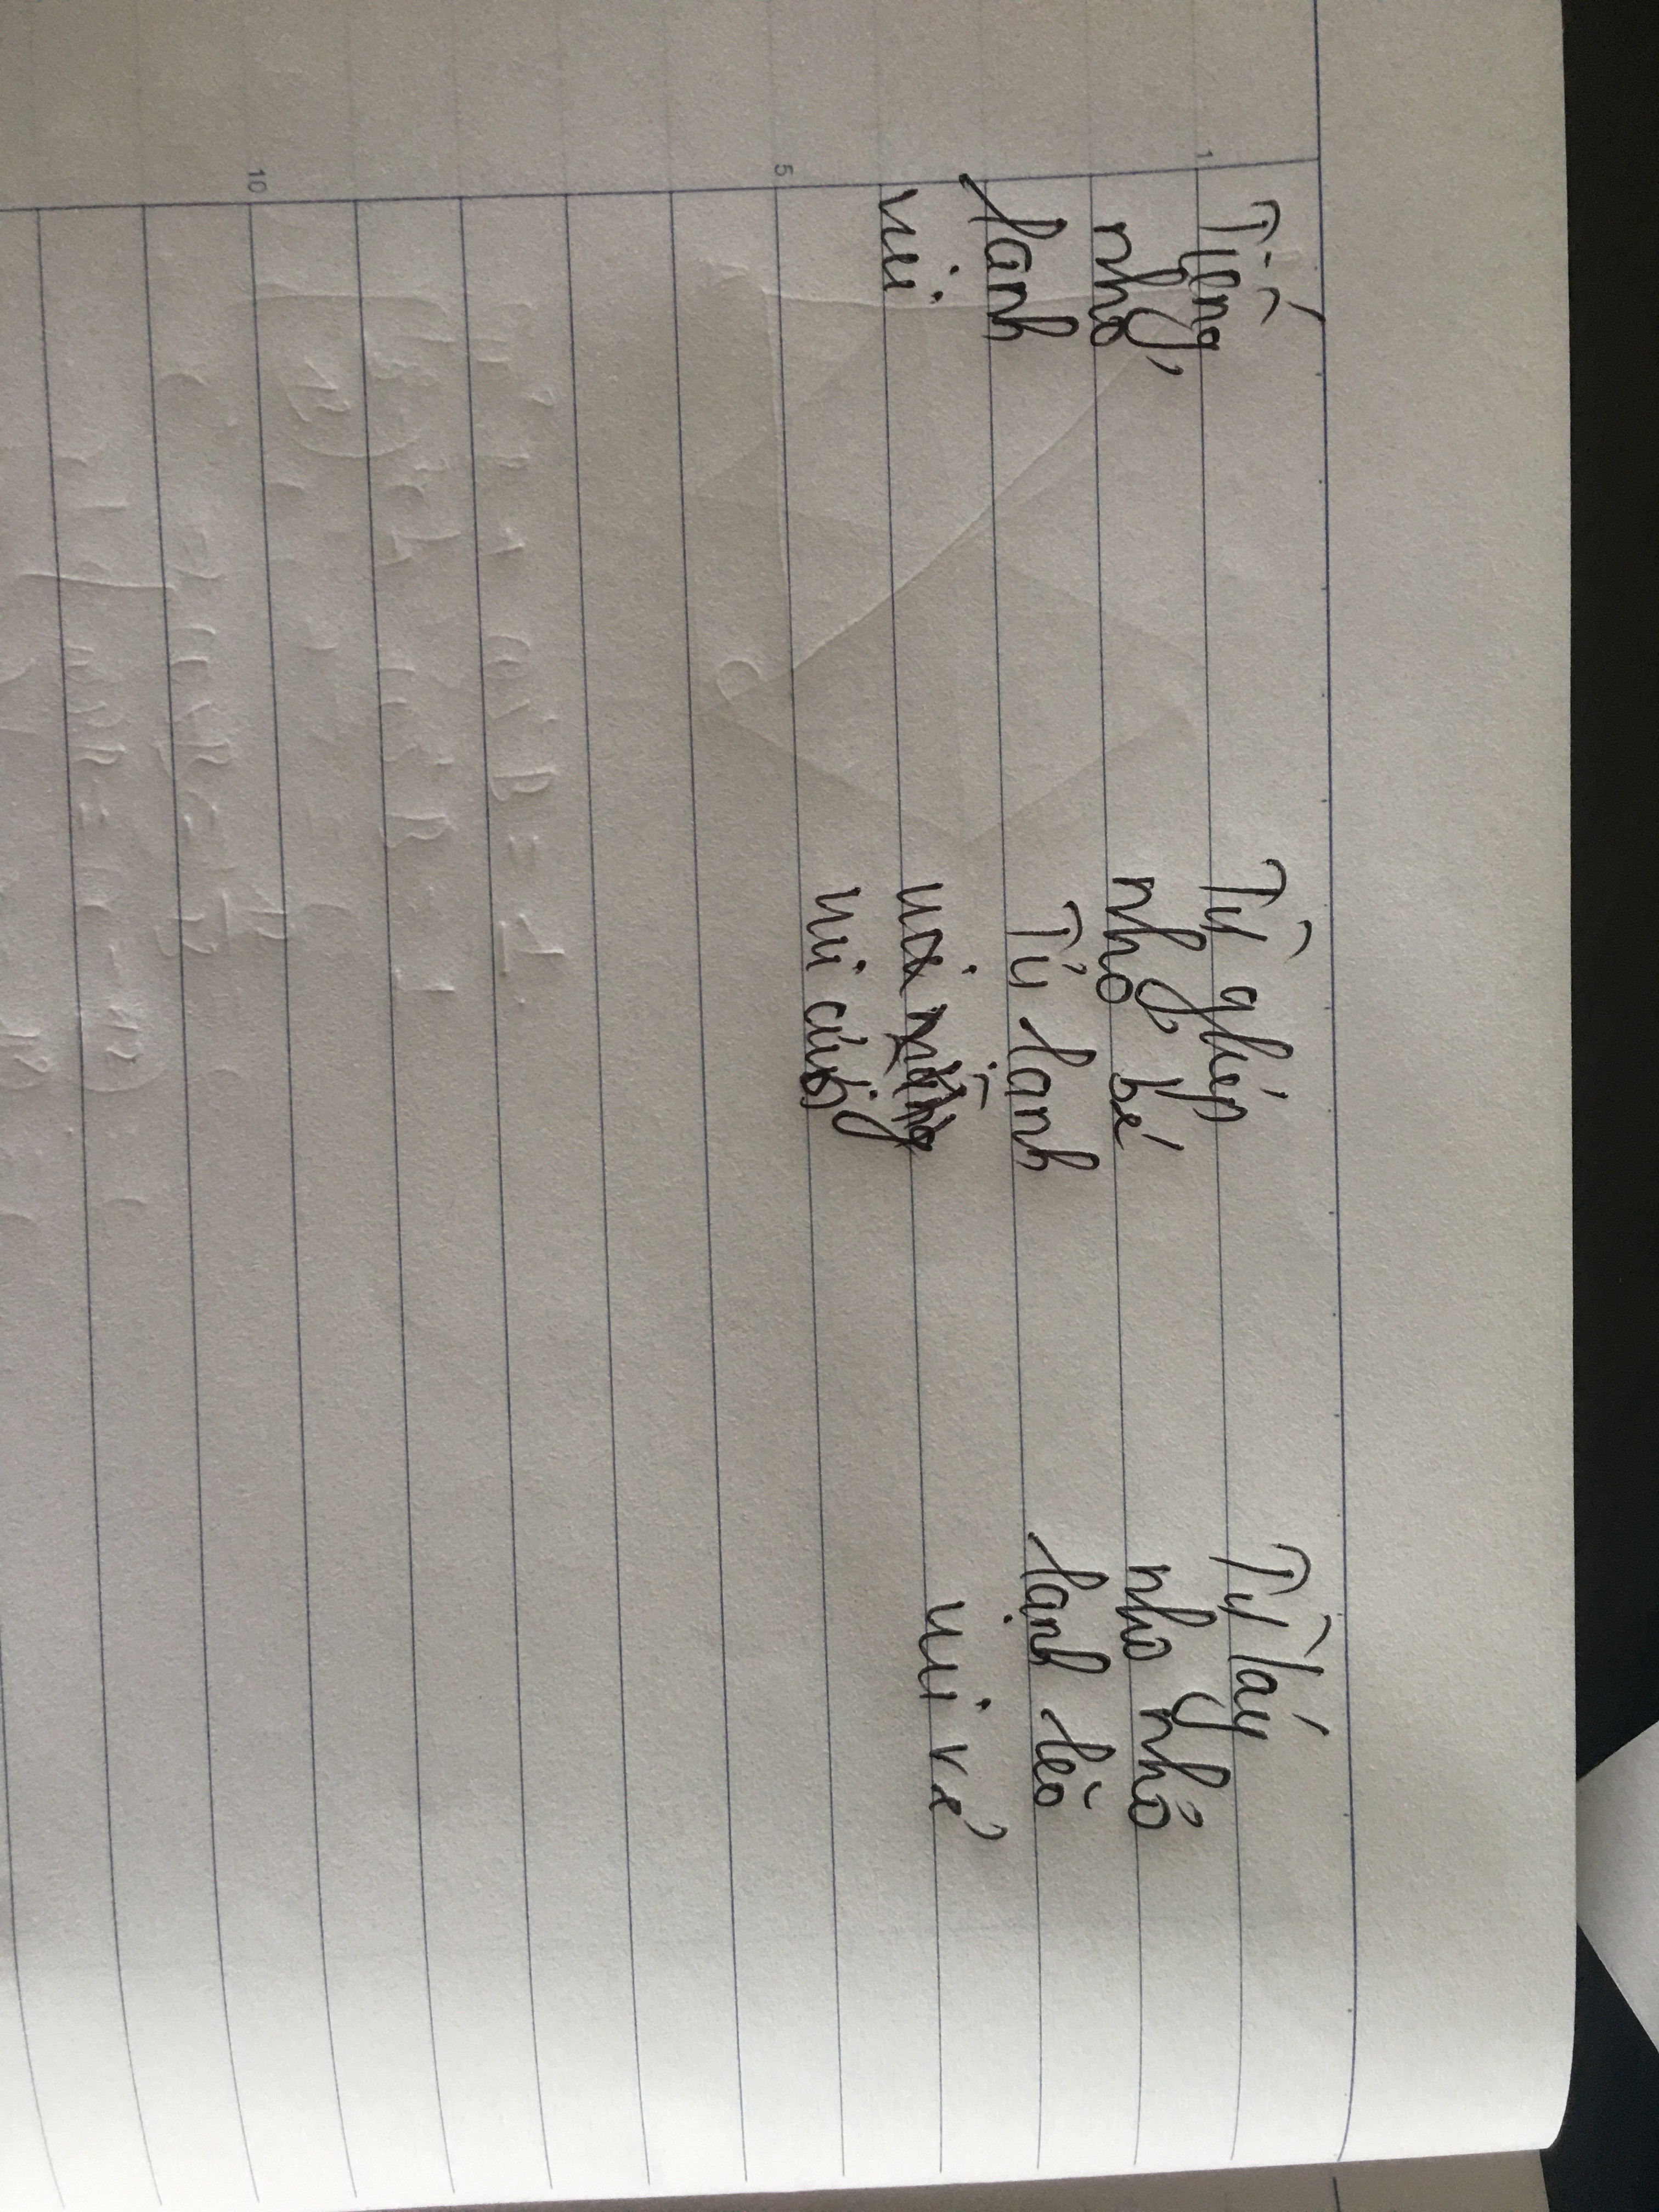 Tiếng Từ ghép Từ láy
1
nhỏ nhỏ bé nho nhỏ
lanh Tủ lạnh lạnh lẽo
vui vui vui vẻ
5
vui
10